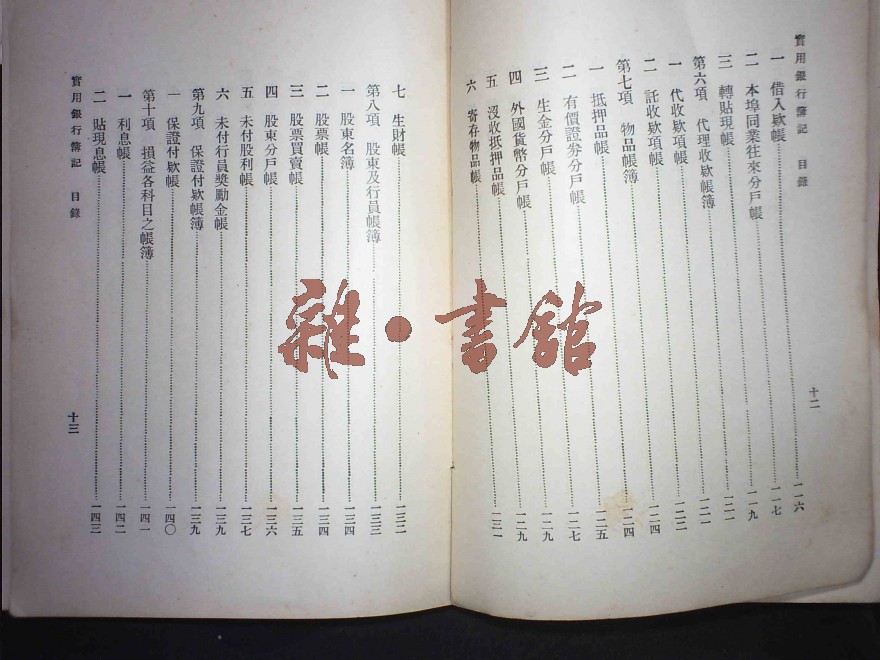 實用銀行簿記 目錄
一 借入欵帳……一一六
二 本埠同業往來分戶帳……一一七
三 轉貼現帳……一一九
第六項 代理收欵帳簿……一二一
一 代收欵項帳……一二一
二 託收欵項帳……一二二
第七項 物品帳簿……一二四
一 抵押品帳……一二四
二 有價證券分戶帳……一二五
三 生金分戶帳……一二七
四 外國貨幣分戶帳……一二九
五 沒收抵押品帳……一二九
六 寄存物品帳……一三一
十二
七 生財帳……一三二
第八項 股東及行員帳簿……一三三
一 股東名簿……一三四
二 股票帳……一三四
三 股票買賣帳……一三五
四 股東分戶帳……一三六
五 未付股利帳……一三七
六 未付行員獎勵金帳……一三九
第九項 保證付欵帳簿……一三九
一 保證付欵帳……一四〇
第十項 損益各科目之帳簿……一四一
一 利息帳……一四二
二 貼現息帳……一四三
實用銀行簿記 目錄
十三
雜·書館